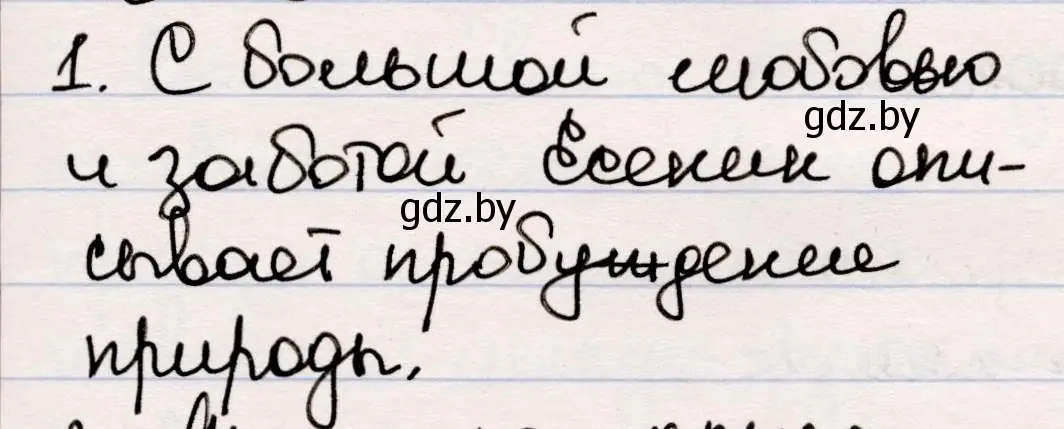 1. С большой любовью
gdz.by
и заботой Есенин опи-
gdz.by
сывает пробуждение
природы.